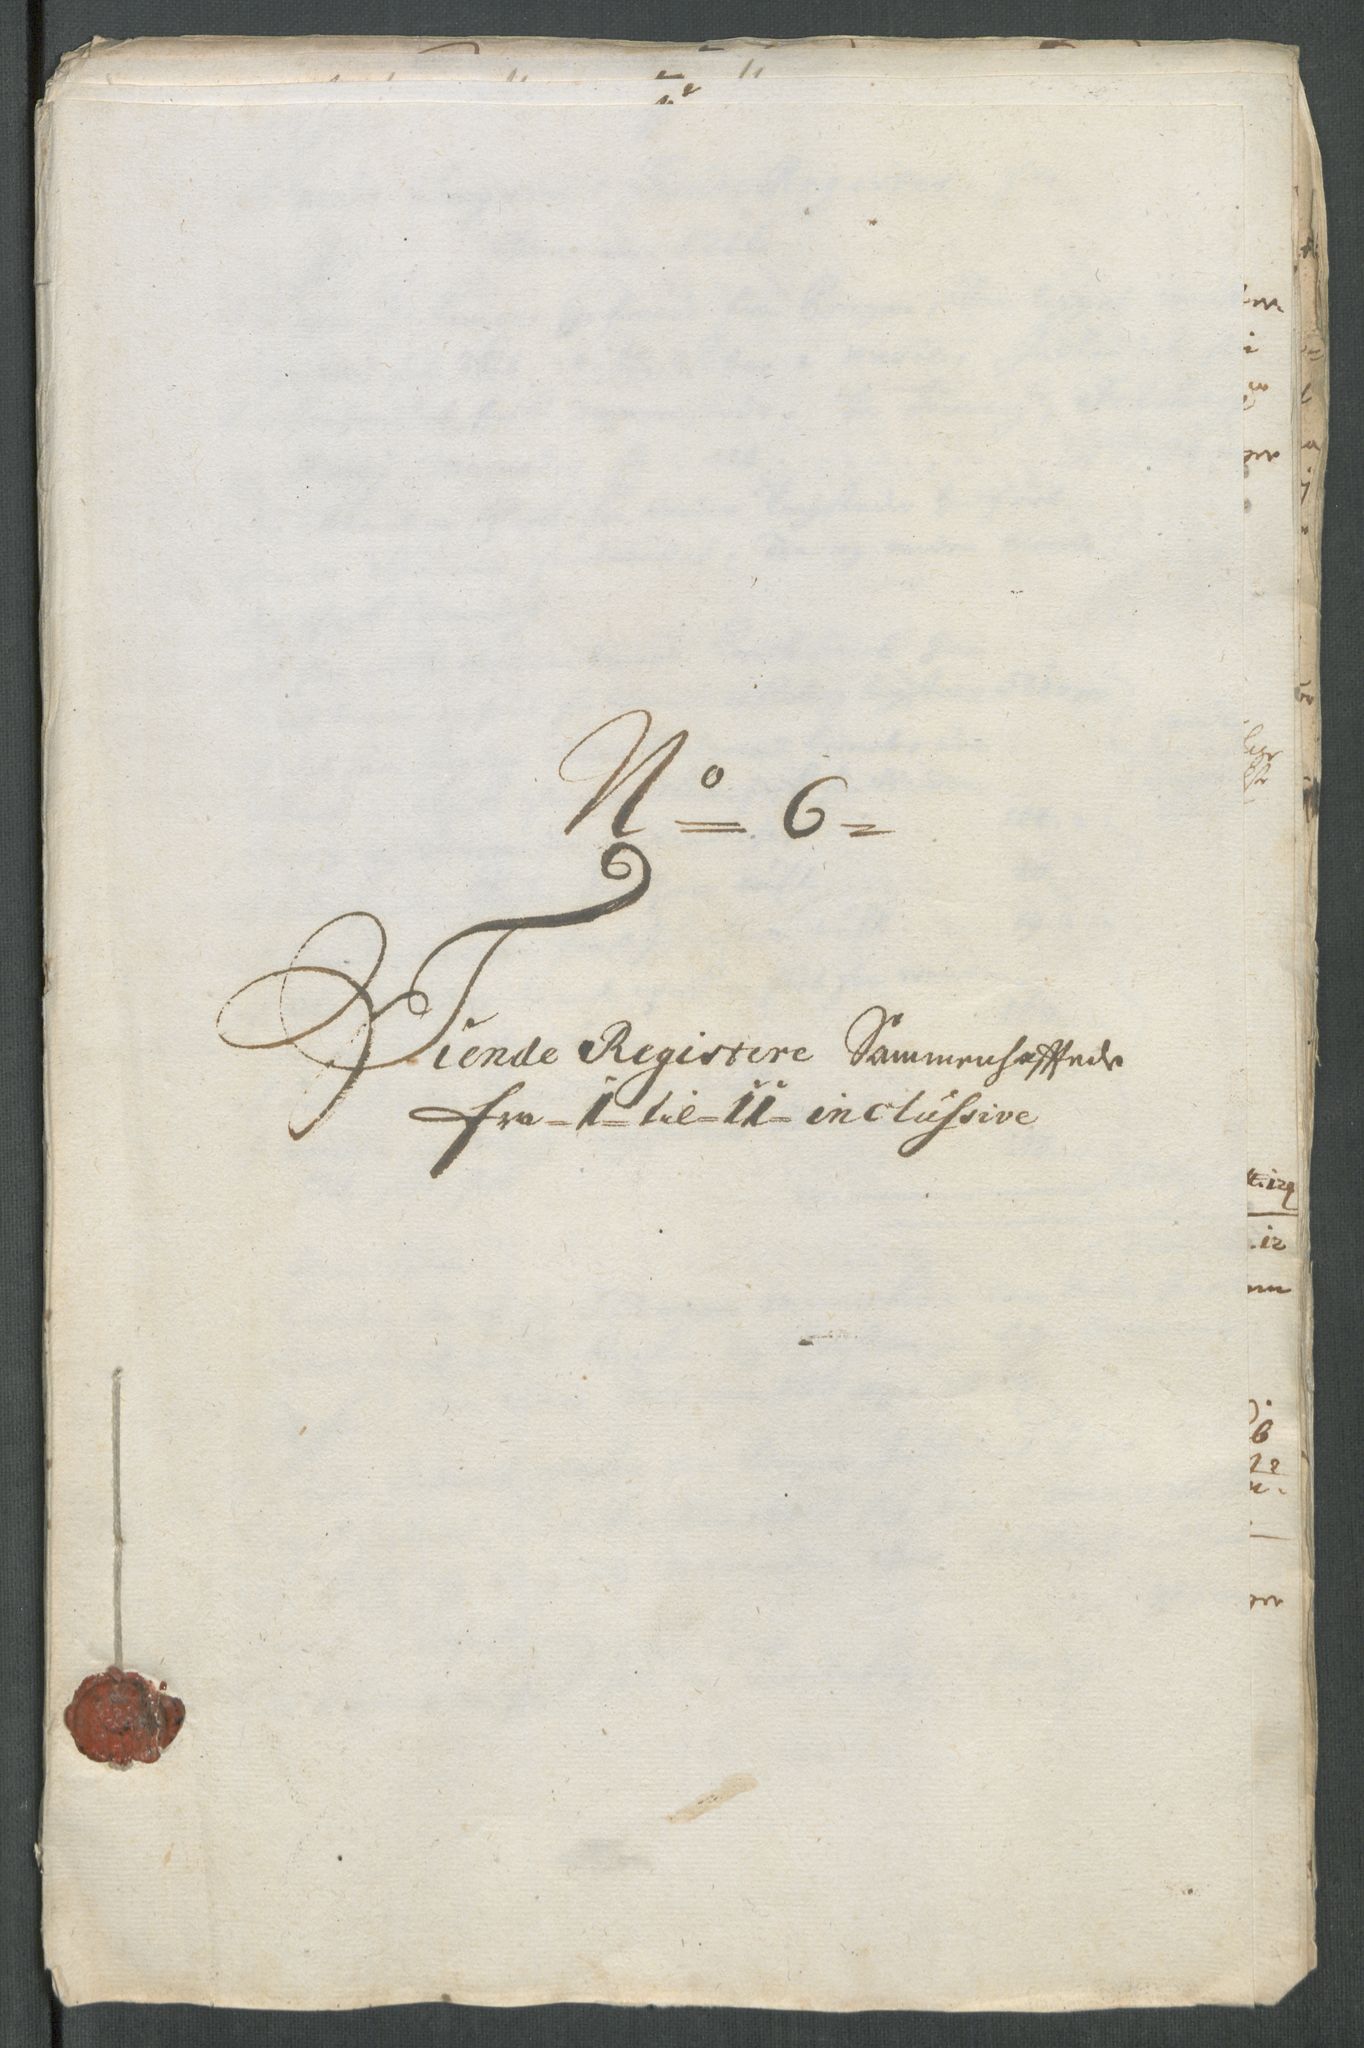 No 6
Tiende Registere Sammenhefftede
fra - 1 - til - 11 - inclusive